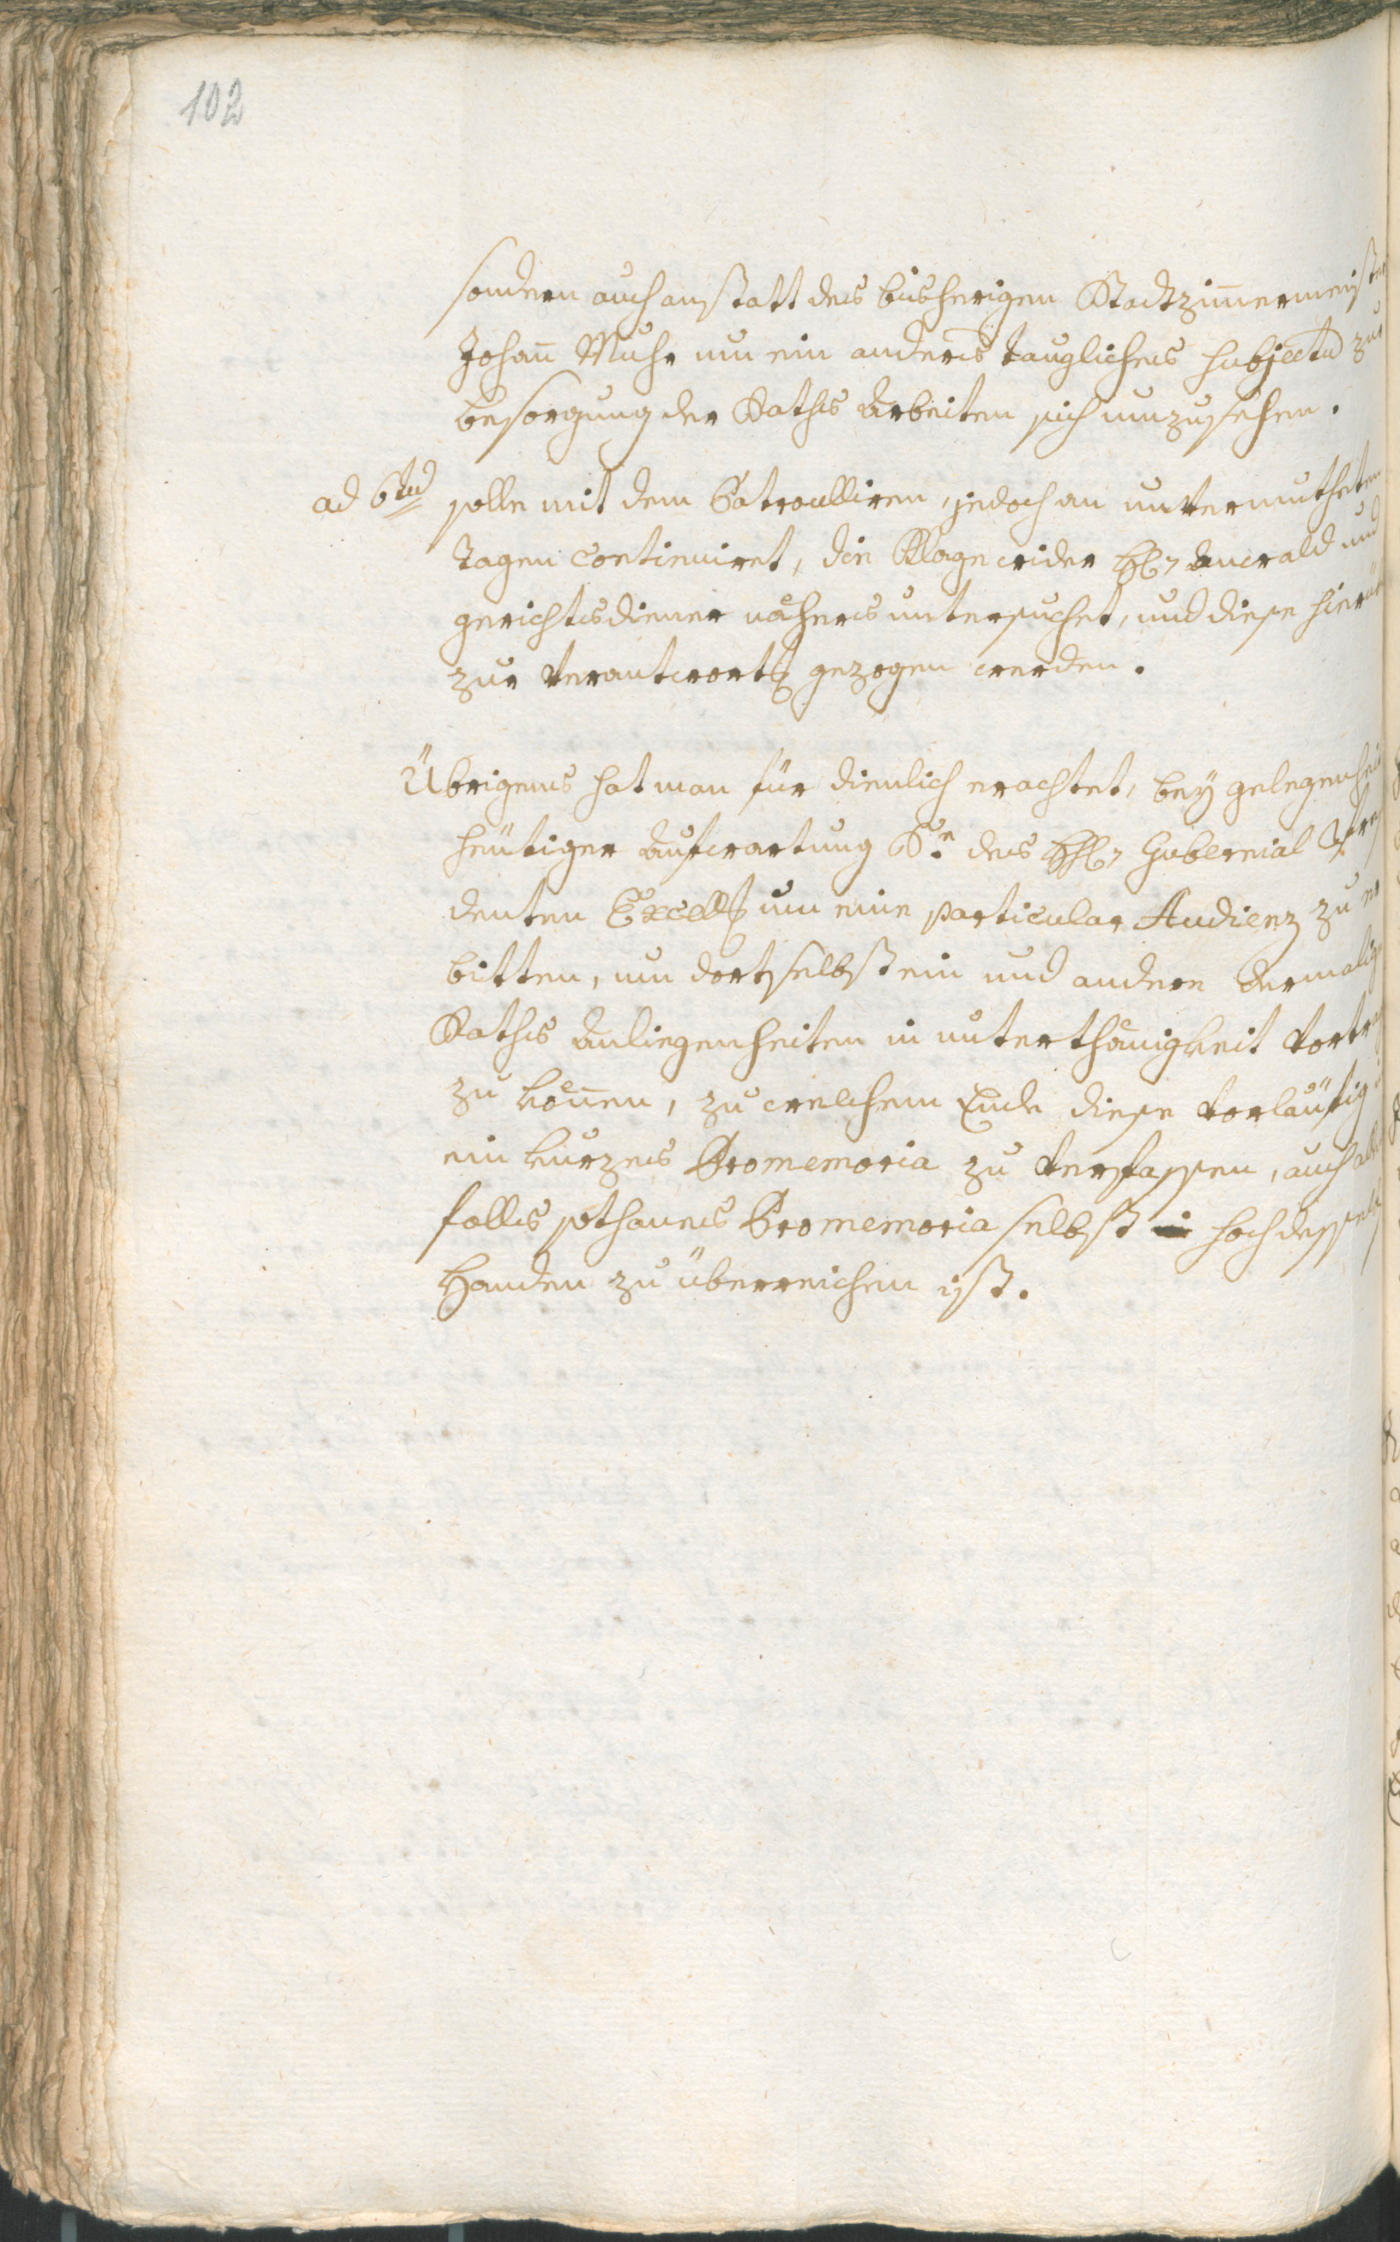 102
sondern auch anstatt des bisherigen Stadtzimmermeister
Johan̅ Muhr um ein anders taugliches Subjectu zur
besorgung der Raths Arbeiten sich umzusehen.
ad 6tu solle mit dem Patroulliren, jedoch an unvermutheten
Tagen continuiret, die Klage wider H: Anwald und
gerichtsdiener näher untersuchet, und diese hierü
zur Verantwort gezogen werden.
Übrigens hat man für dienlich erachtet, bey gelegenheit
heütiger Aufwartung Sr. des H: Gubernial Præsi
denten Excell um eine particular Audienz zu er
bitten, um dortselbst ein und andere dermalig
Raths Anliegenheiten in unterthänigkeit Vortrag
zu kön̅en, zu welchem Ende diese Vorläufig
ein kurzes Promemoria zu Verfassen, auch allen
falls sothanes Promemoria selbst hochdesselb
Handen zu überreichen ist.